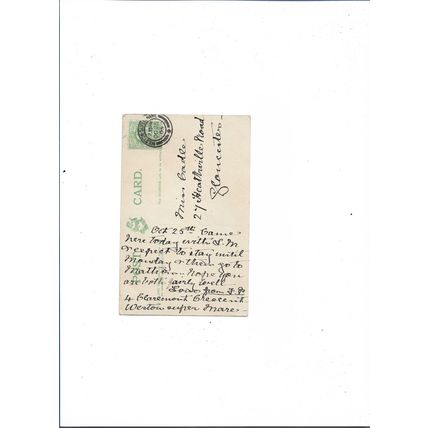 POST CARD.
Miss Cradle
27 Heathville Road
Gloucester
Oct 25th Came
here today with S. M
expect to stay until
Monday then go to
hope you
are both fairly well
Love from
4 Claremont Crescent
Weston super Mare